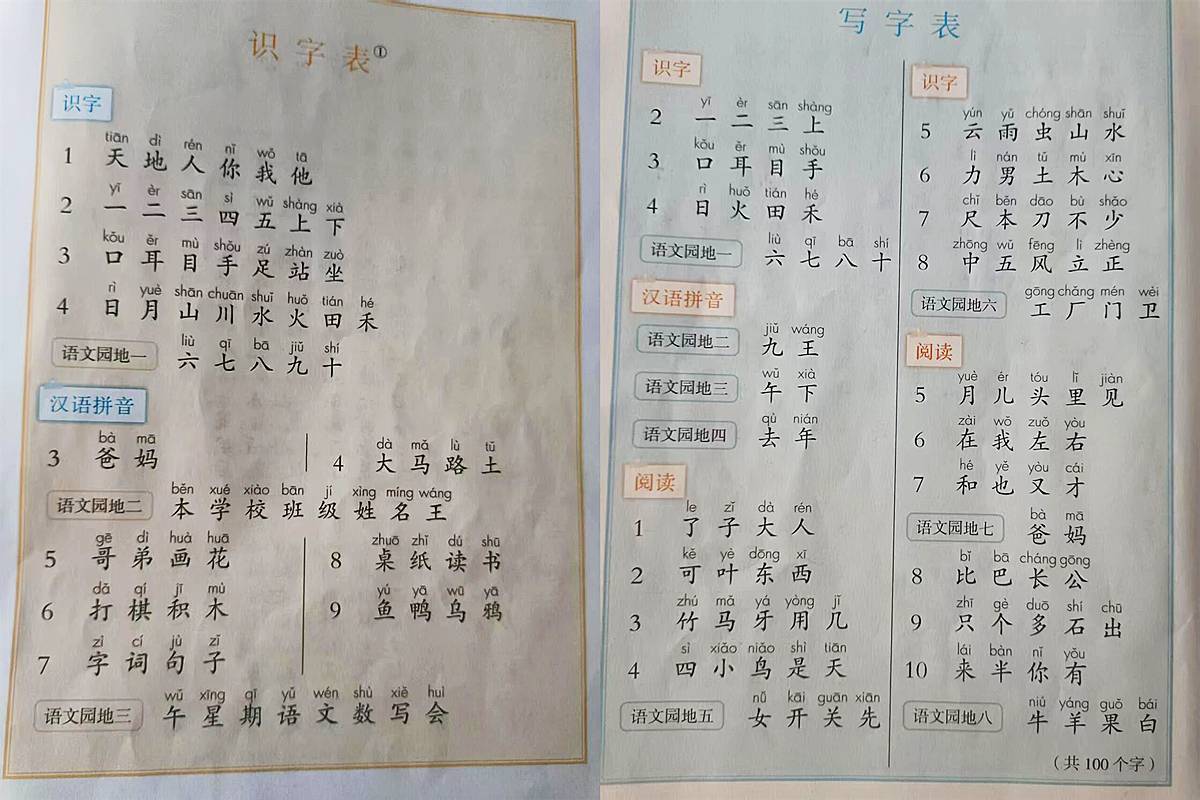 识字表①
识字
tiān dì rén nǐ wǒ tā
1 天 地 人 你 我 他
yī èr sān sì wǔ shàng xià
2 一 二 三 四 五 上 下
kǒu ěr mù shǒu zú zhàn zuò
3 口 耳 目 手 足 站 坐
rì yuè shān chuān shuǐ huǒ tián hé
4 日 月 山 川 水 火 田 禾
liù qī bā jiǔ shí
语文园地一 六 七 八 九 十
汉语拼音
bà mā
3 爸 妈
dà mǎ lù tǔ
4 大 马 路 土
běn xué xiào bān jí xìng míng wáng
语文园地二 本 学 校 班 级 姓 名 王
gē dì huà huā
5 哥 弟 画 花
zhuō zhǐ dú shū
8 桌 纸 读 书
dǎ qí jī mù
6 打 棋 积 木
yú yā wū yā
9 鱼 鸭 乌 鸦
zì cí jù zǐ
7 字 词 句 子
wǔ xīng qī yǔ wén shù xiě huì
语文园地三 午 星 期 语 文 数 写 会
写字表
识字
yī èr sān shàng
2 一 二 三 上
kǒu ěr mù shǒu
3 口 耳 目 手
rì huǒ tián hé
4 日 火 田 禾
liù qī bā shí
语文园地一 六 七 八 十
汉语拼音
jiǔ wáng
语文园地二 九 王
wǔ xià
语文园地三 午 下
qù nián
语文园地四 去 年
阅读
le zǐ dà rén
1 了 子 大 人
kě yè dōng xī
2 可 叶 东 西
zhú mǎ yá yòng jǐ
3 竹 马 牙 用 几
sì xiǎo niǎo shì tiān
4 四 小 鸟 是 天
nǚ kāi guān xiān
语文园地五 女 开 关 先
识字
yún yǔ chóng shān shuǐ
5 云 雨 虫 山 水
lì nán tǔ mù xīn
6 力 男 土 木 心
chǐ běn dāo bù shǎo
7 尺 本 刀 不 少
zhōng wǔ fēng lì zhèng
8 中 五 风 立 正
gōng chǎng mén wèi
语文园地六 工 厂 门 卫
阅读
yuè ér tóu lǐ jiàn
5 月 儿 头 里 见
zài wǒ zuǒ yòu
6 在 我 左 右
hé yě yòu cái
7 和 也 又 才
bà mā
语文园地七 爸 妈
bǐ bā cháng gōng
8 比 巴 长 公
zhī gè duō shí chū
9 只 个 多 石 出
lái bàn nǐ yǒu
10 来 半 你 有
niú yáng guǒ bái
语文园地八 牛 羊 果 白
（共 100 个字）